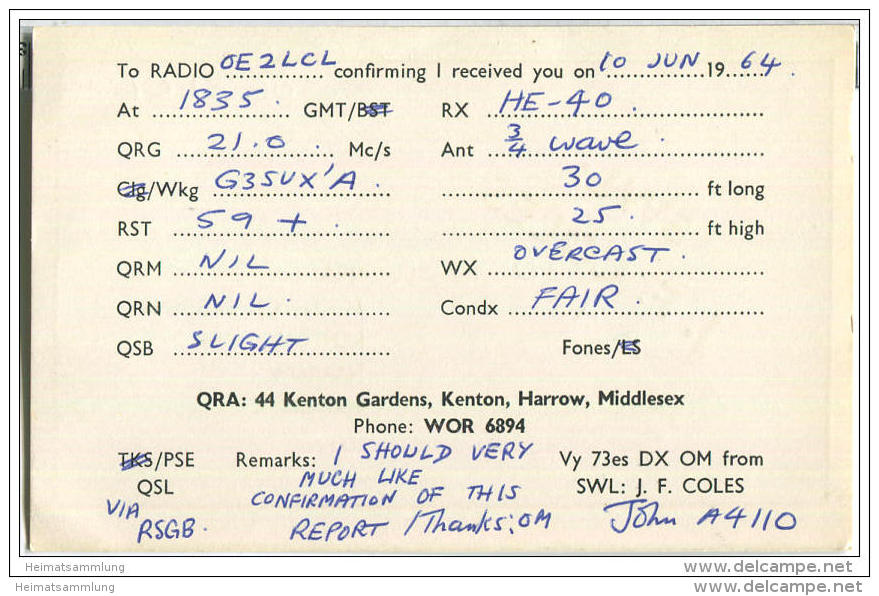 To RADIO OE2LCL confirming I received you on 10 JUN 1964.
At 1835. GMT/BST RX HE-40.
QRG 21.0 Mc/s Ant 3/4 wave.
Clg/Wkg G3SUX'A. 30 ft long
RST 59 + 25. ft high
QRM NIL WX OVERCAST.
QRN NIL. Condx FAIR.
QSB SLIGHT Fones/LS
QRA: 44 Kenton Gardens, Kenton, Harrow, Middlesex
Phone: WOR 6894
TKS/PSE Remarks: I SHOULD VERY Vy 73es DX OM from
QSL MUCH LIKE SWL: J. F. COLES
VIA CONFIRMATION OF THIS
RSGB. REPORT / Thanks; OM John A4110
Heimatsammlung www.delcampe.net
Heimatsammlung www.delcampe.net